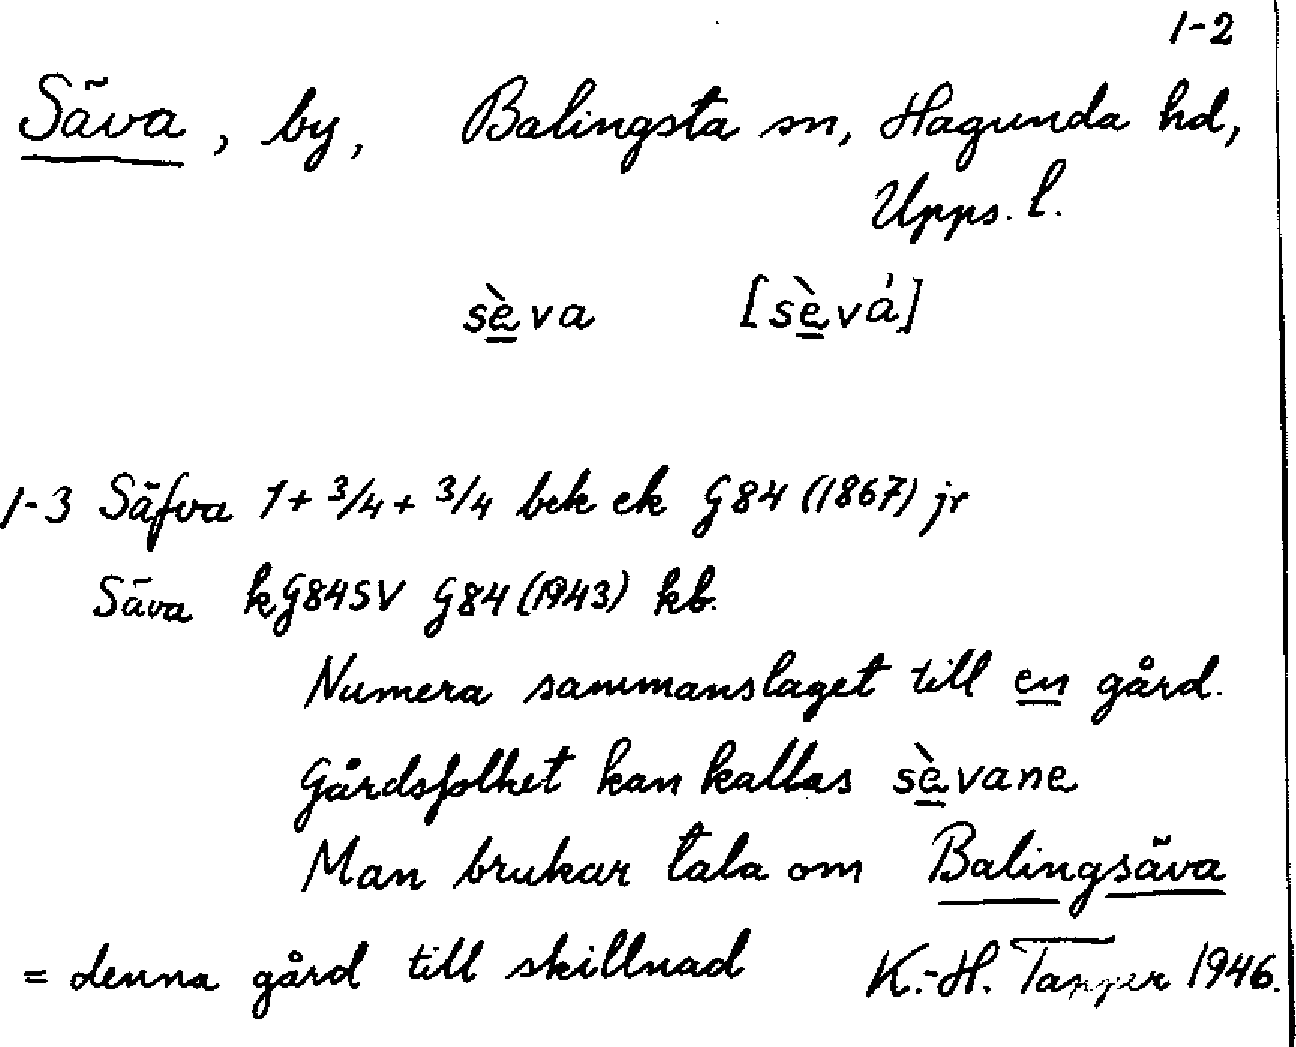 1-2
Säva, by, Balingsta sn, Hagunda hd,
Upps. l.
sèva [sèvá]
1-3 Säfva 1+ 3/4 + 3/4 bek ek G84 (1867) jr
Säva kG84SV G84 (1943) kb.
Numera sammanslaget till en gård.
Gårdsfolket kan kallas sèvane
Man brukar tala om Balingsäva
= denna gård till skillnad K.-H. Tapper 1946.